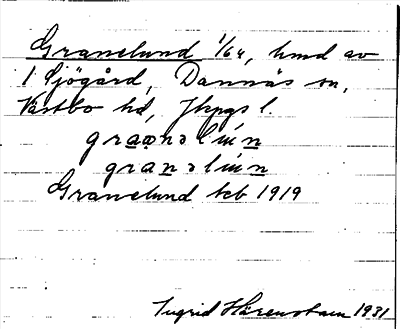 Granelund 1/64, hmd av
1 Sjögård, Dannäs sn,
Västbo hd, Jkpgs l.
granəlun
Granelund bcb 1919
Ingrid Härenstam 1931